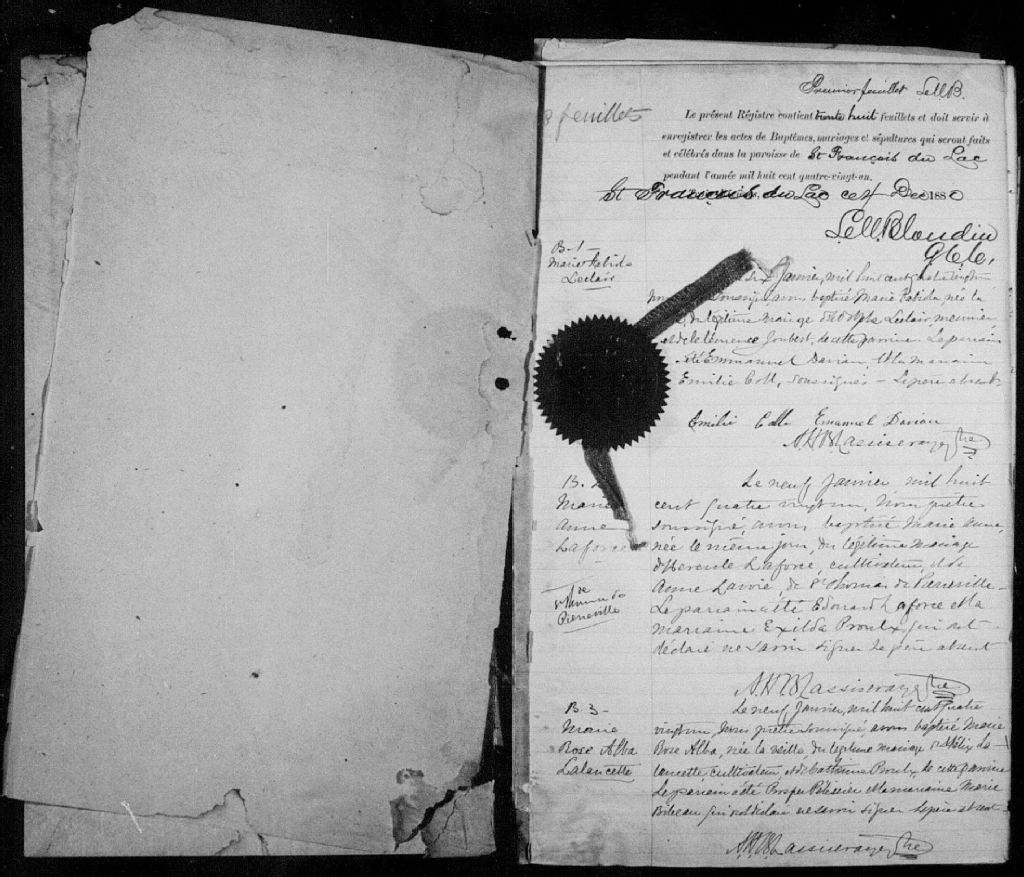 Premier feuillet LellB.
feuillets
Le présent Régistre contient trente huit feuillets et doit servir à
enregistrer les actes de Baptêmes, mariages et sépultures qui seront faits
et célébrés dans la paroisse de St François du Lac
pendant l'année mil huit cent quatre-vingt-un.
St François du Lac ce 4 Dec 1880
Blondin
B-1-
Marie Fabida
Leclair
Janvier, mil huit cent quatre vingt un
soussigné avons baptisé Marie Fabida, née la
du légitime mariage Leclair, meunier
et de Clémence Joubert, de cette paroisse. Le parrain
été Emmanuel Davian, et la marraine
Emilie Coll, soussignés – Le père absent
Emilie Emanuel Davian
Ptre
B.
Marie
Anne
Laforce
St Thomas de
Pierreville
Le neuf Janvier mil huit
cent quatre vingt un, Nous prêtre
soussigné, avons baptisé Marie Anne,
née le même jour, du légitime mariage
d'Hercule Laforce, cultivateur, et de
Anne Lavoie, de St Thomas de Pierreville –
Le parrain a été Edouard Laforce et la
marraine Exilda Proulx, qui ont
déclaré ne savoir signer le père absent
Ptre
B 3-
Marie
Rose Alba
Lalancette
Le neuf Janvier, mil huit cent quatre
vingt un, Nous prêtre soussigné, avons baptisé Marie
Rose Alba, née la veille du légitime mariage La-
lancette cultivateur, et de Catherine Proulx, de cette paroisse
Le parrain a été Prosper Pélissier et la marraine Marie
qui ont déclaré ne savoir signer le père absent –
Ptre